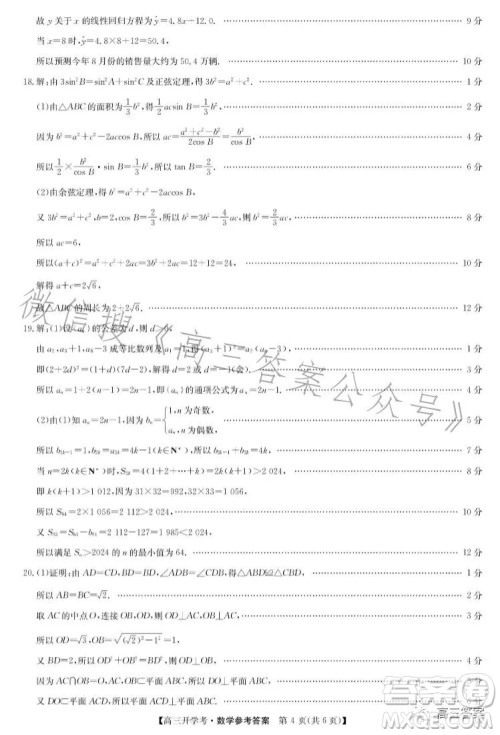 故 y 关于 x 的线性回归方程为 ŷ=4.8x+12.0. 9 分
当 x=8 时, ŷ=4.8×8+12=50.4,
所以预测今年 8 月份的销售量大约为 50.4 万辆. 10 分
18.解:由 3sin²B=sin²A+sin²C 及正弦定理,得 3b²=a²+c². 1 分
(1)由△ABC 的面积为 1/3 b²,得 1/2 acsin B=1/3 b². 2 分
因为 b²=a²+c²-2accos B,所以 ac=(a²+c²-b²)/(2cos B)=b²/cos B. 4 分
所以 1/2×b²/cos B·sin B=1/3 b²,所以 tan B=2/3. 6 分
(2)由余弦定理,得 b²=a²+c²-2accos B,
又 3b²=a²+c²,b=2,cos B=2/3,所以 b²=3b²-4/3 ac,则 b²=2/3 ac, 8 分
所以 ac=6,
所以(a+c)²=a²+c²+2ac=3b²+2ac=12+12=24,
解得 a+c=2√6,
故△ABC 的周长为 2+2√6. 12 分
19.解:(1)设 的公差为 d,则 d>0.
由 a₂,a₃+1,a₆-3 成等比数列及 a₁=1,
即(2+2d)²=(1+d)(7d-2),解得 d=2 或 d=-1(舍). 3 分
所以 aₙ=1+2(n-1)=2n-1,即 的通项公式为 aₙ=2n-1. 4 分
(2)由(1)知 aₙ=2n-1,因为 bₙ={1,n 为奇数, aₙ,n 为偶数, 5 分
所以 b₂ₖ₋₁=1,b₂ₖ=a₂ₖ=4k-1(k∈N*),所以 b₂ₖ₋₁+b₂ₖ=4k. 7 分
当 n=2k(k∈N*)时,S₂ₖ=4(1+2+⋯+k)=2k(k+1)>2 024, 8 分
即 k(k+1)>1 012,因为 31×32=992,32×33=1 056,
所以 S₆₄=2×1 056=2 112>2 024. 10 分
又 S₆₃=S₆₄-b₆₄=2 112-127=1 985<2 024,
所以满足 Sₙ>2024 的 n 的最小值为 64. 12 分
20.(1)证明:由 AD=CD,BD=BD,∠ADB=∠CDB,得△ABD≌△CBD, 1 分
所以 AB=BC=√2. 2 分
取 AC 的中点 O,连接 OB,OD,则 OB=1,OD⊥AC. 3 分
所以 OD=√3,OB=√((√2)²-1²)=1.
又 BD=2,所以 OD²+OB²=BD²,所以 OD⊥OB.
因为 AC∩OB=O,AC⊂平面 ABC,OB⊂平面 ABC,所以 OD⊥平面 ABC.
又 OD⊂平面 ACD,所以平面 ACD⊥平面 ABC.
【高三开学考·数学参考答案 第 4 页(共 6 页)】
微信搜《高三答案公众号》
高三答案